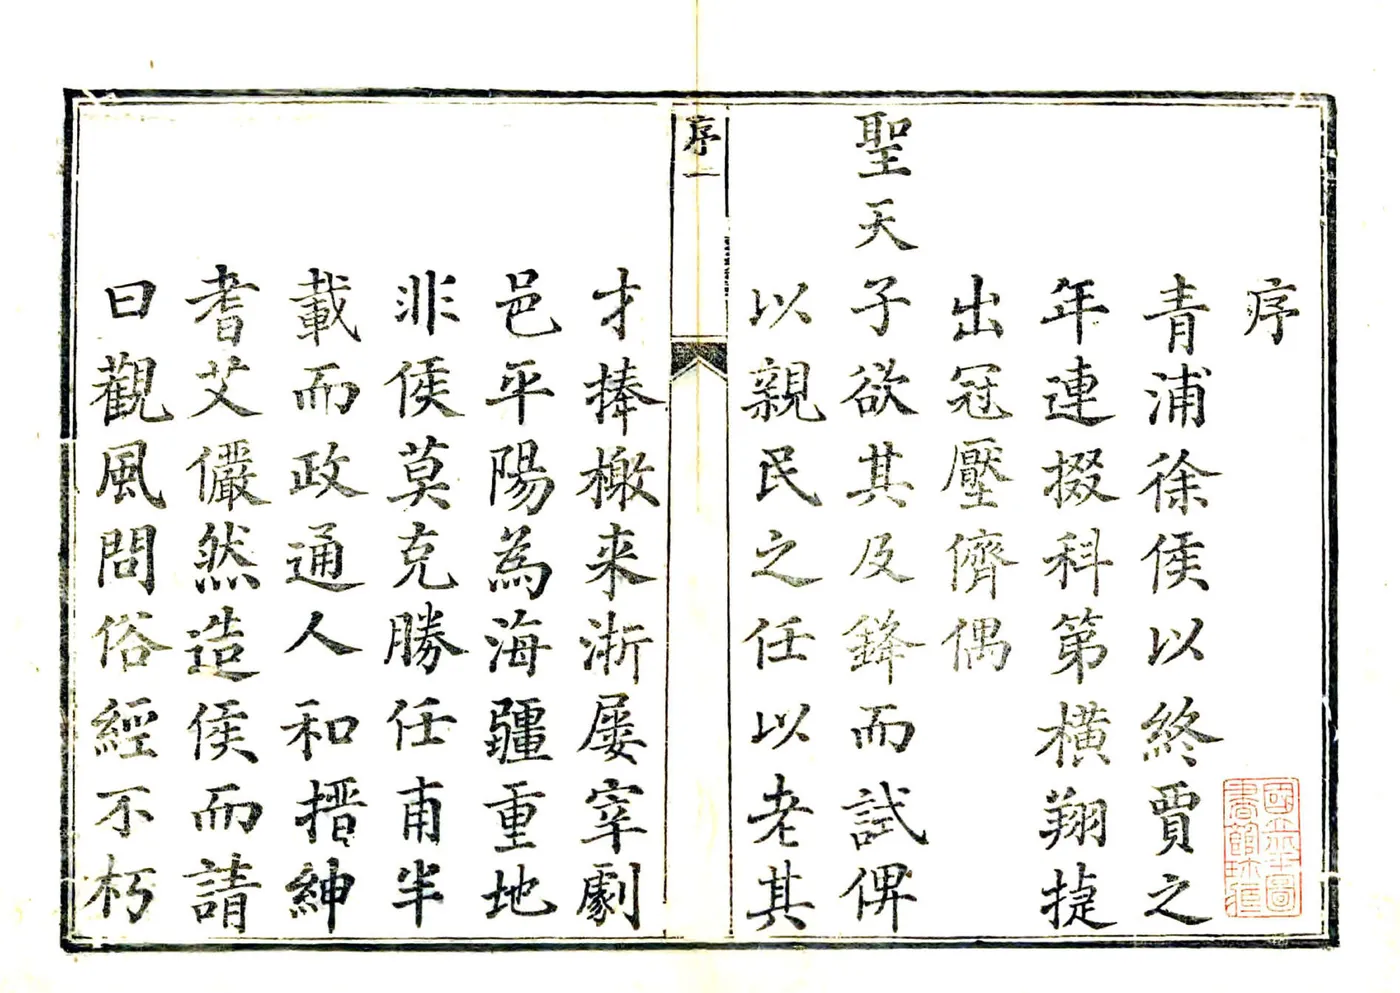 序
青浦徐侯以終賈之
年連掇科第横翔捷
出冠壓儕偶
聖天子欲其及鋒而試俾
以親民之任以老其
序一
才捧檄来浙屡宰劇
邑平陽為海疆重地
非侯莫克勝任甫半
載而政通人和搢紳
耆艾儼然造侯而請
曰觀風問俗經不朽